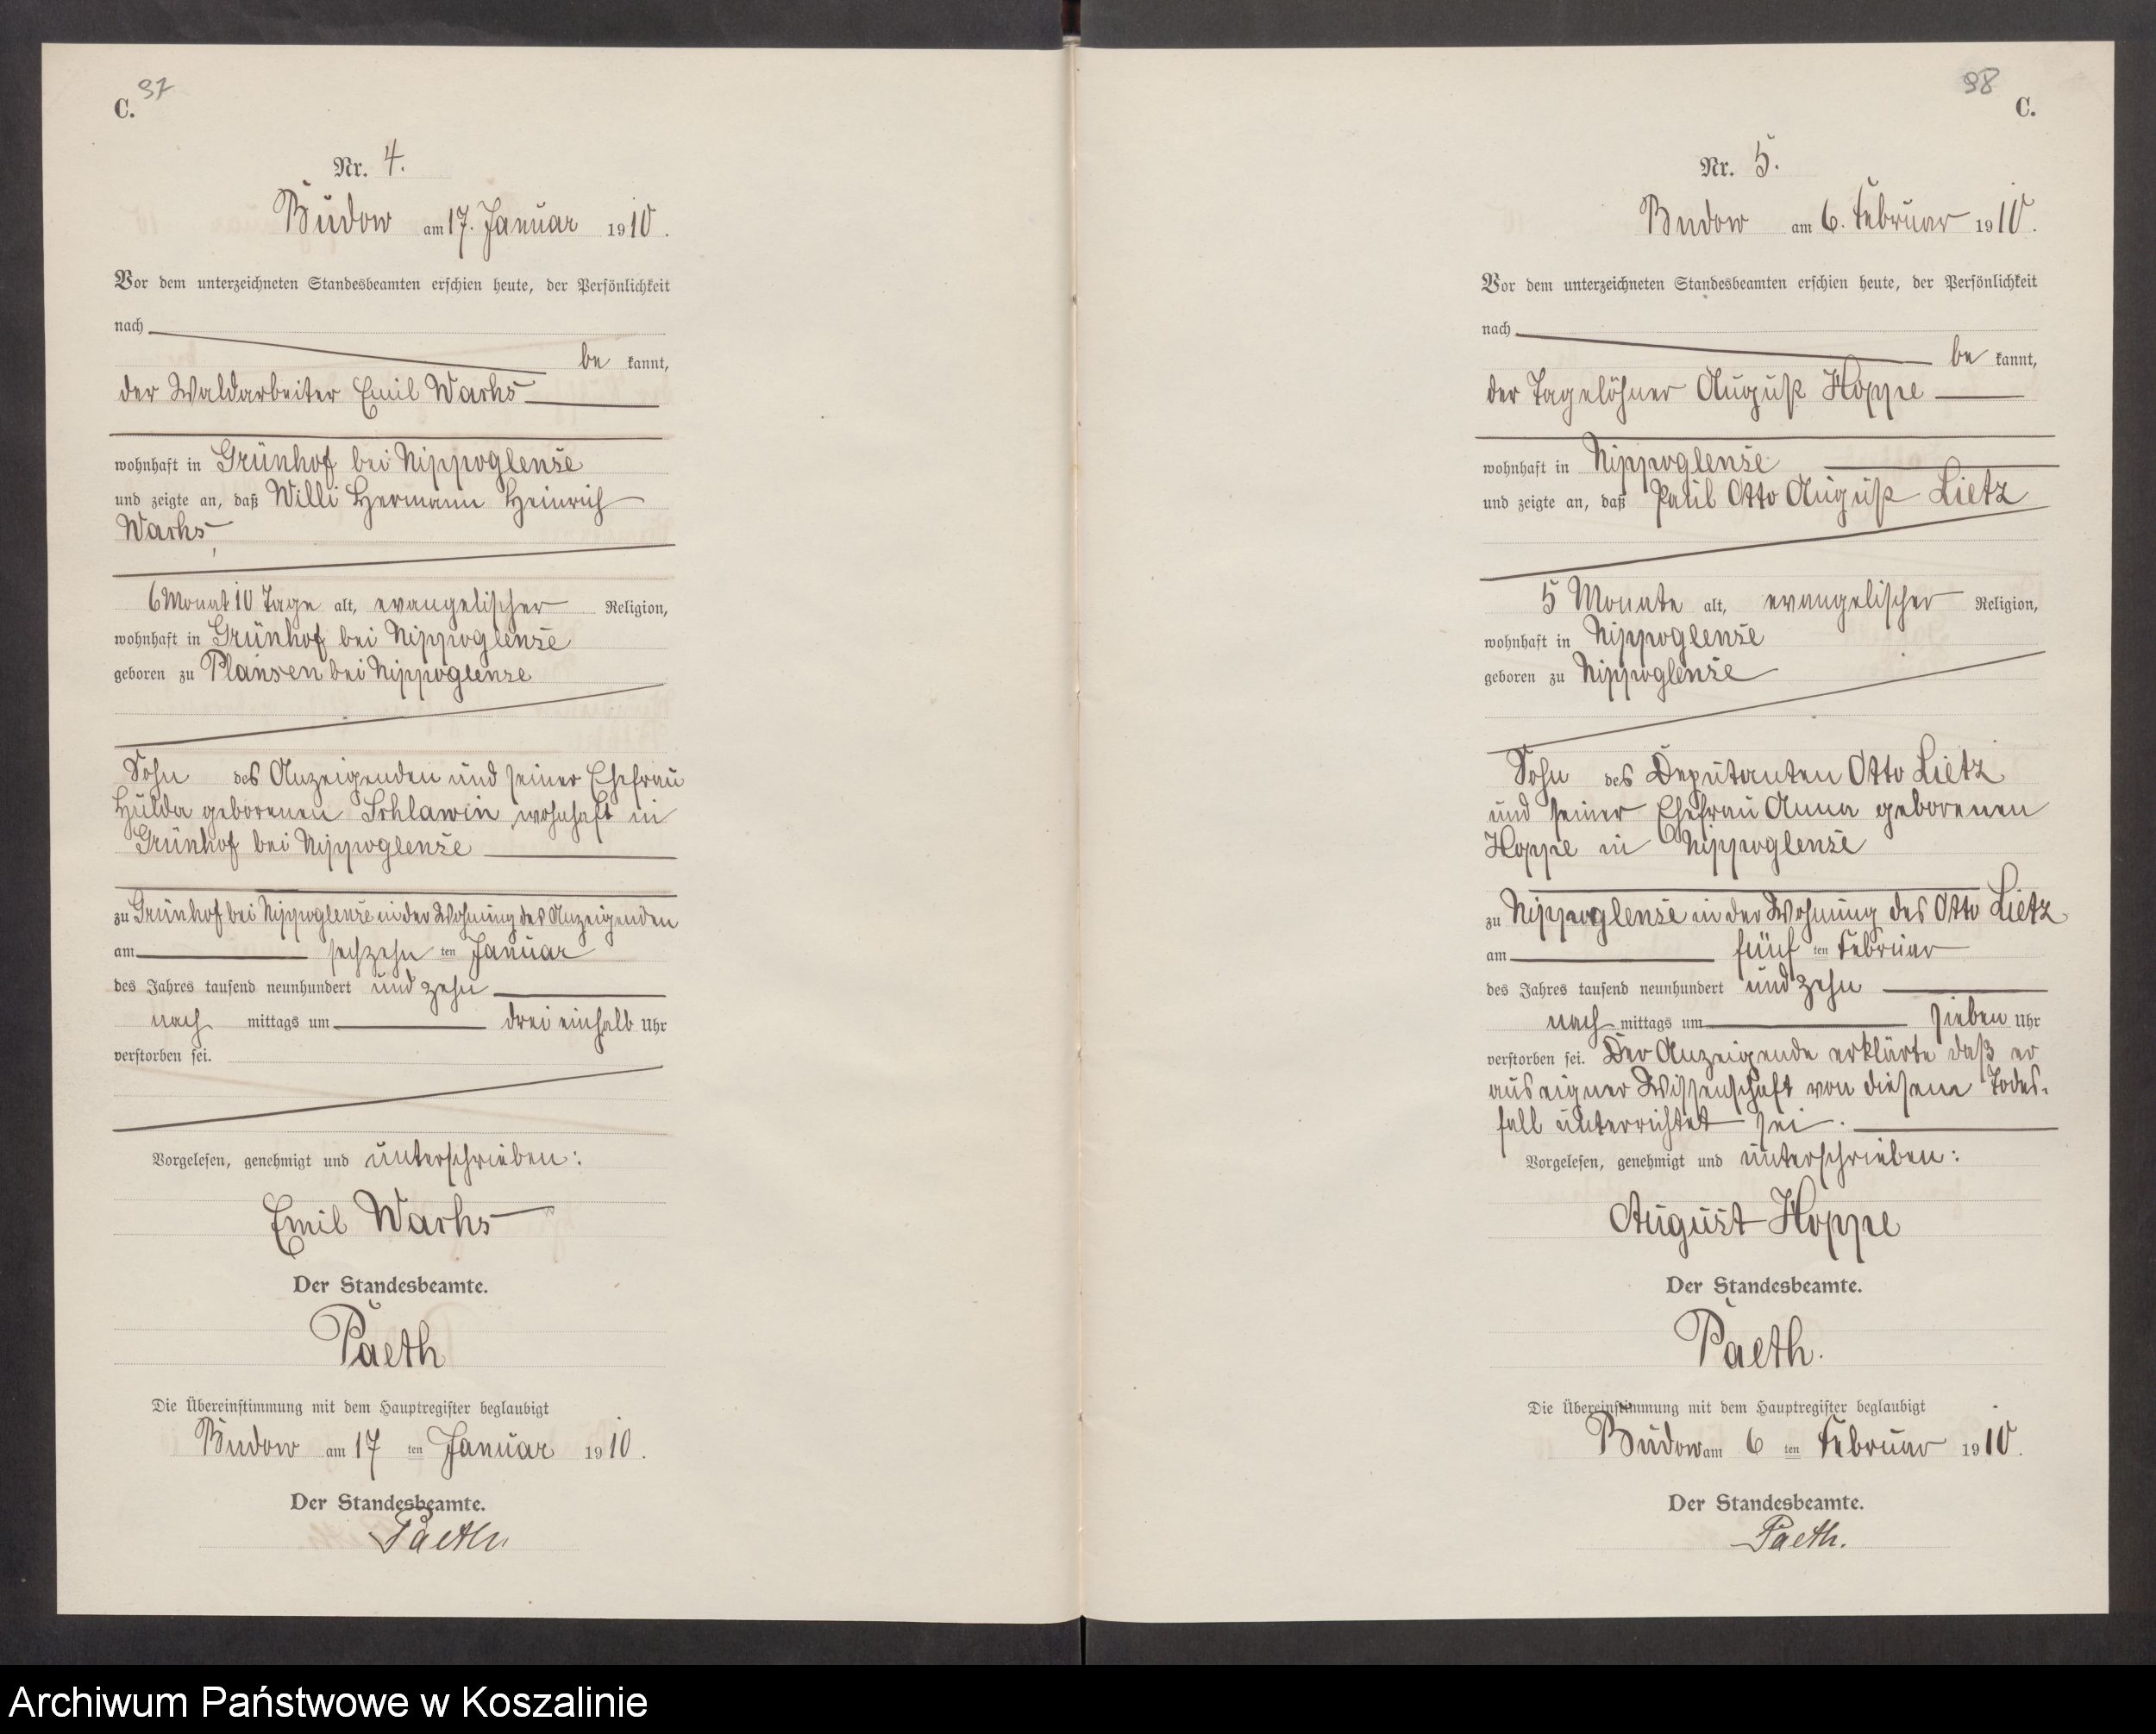 37
C.
Nr. 4.
Budow am 17. Januar 1910.
Vor dem unterzeichneten Standesbeamten erschien heute, der Persönlichkeit
nach
be kannt,
der Waldarbeiter Emil Warhs
wohnhaft in Grünhof bei Nippoglense
und zeigte an, daß Willi Hermann Heinrich
Warhs,
6 Monat 10 Tage alt, evangelischer Religion,
wohnhaft in Grünhof bei Nippoglense
geboren zu Plansen bei Nippoglense
Sohn des Anzeigenden und seiner Ehefrau
Hulda geborenen Schlawin, wohnhaft in
Grünhof bei Nippoglense
zu Grünhof bei Nippoglense in der Wohnung des Anzeigenden
am sechzehn ten Januar
des Jahres tausend neunhundert und zehn
nach mittags um drei einhalb Uhr
verstorben sei.
Vorgelesen, genehmigt und unterschrieben:
Emil Warhs
Der Standesbeamte.
Paeth
Die Übereinstimmung mit dem Hauptregister beglaubigt
Budow am 17 ten Januar 1910.
Der Standesbeamte.
Paeth
38
C.
Nr. 5.
Budow am 6. Februar 1910.
Vor dem unterzeichneten Standesbeamten erschien heute, der Persönlichkeit
nach
be kannt,
der Tagelöhner August Hoppe
wohnhaft in Nippoglense
und zeigte an, daß Paul Otto August Lietz
5 Monate alt, evangelischer Religion,
wohnhaft in Nippoglense
geboren zu Nippoglense
Sohn des Deputanten Otto Lietz
und seiner Ehefrau Anna geborenen
Hoppe in Nippoglense
zu Nippoglense in der Wohnung des Otto Lietz
am fünf ten Februar
des Jahres tausend neunhundert und zehn
nach mittags um sieben Uhr
verstorben sei. Der Anzeigende erklärte daß er
aus eigner Wissenschaft von diesem Todes-
fall unterrichtet sei.
Vorgelesen, genehmigt und unterschrieben:
August Hoppe
Der Standesbeamte.
Paeth.
Die Übereinstimmung mit dem Hauptregister beglaubigt
Budow am 6 ten Februar 1910.
Der Standesbeamte.
Paeth.
Archiwum Państwowe w Koszalinie